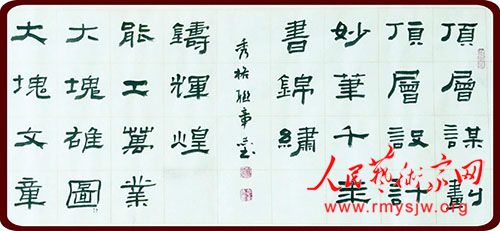 頂層謀劃
頂層設計
妙筆千
書錦繡
大塊文章
大塊雄圖
能工萬業
鑄輝煌
人民藝術家网
www.rmysjw.org